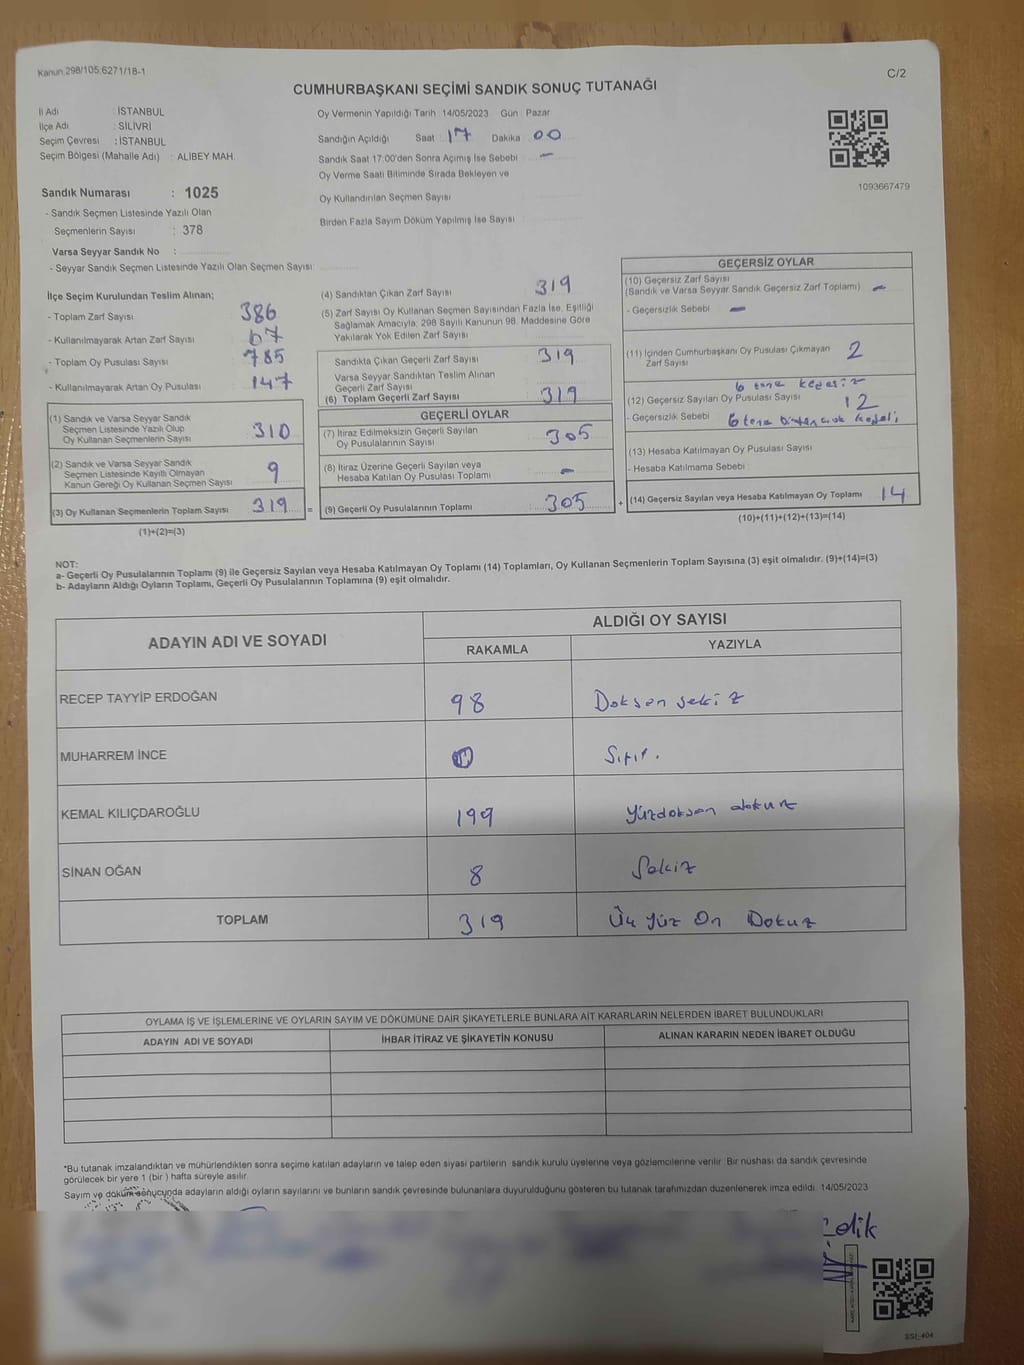 Kanun 298/105.6271/18-1
C/2
CUMHURBAŞKANI SEÇİMİ SANDIK SONUÇ TUTANAĞI
İl Adı : İSTANBUL
İlçe Adı : SİLİVRİ
Seçim Çevresi : İSTANBUL
Seçim Bölgesi (Mahalle Adı) : ALİBEY MAH.
Sandık Numarası : 1025
- Sandık Seçmen Listesinde Yazılı Olan
Seçmenlerin Sayısı : 378
Varsa Seyyar Sandık No :
- Seyyar Sandık Seçmen Listesinde Yazılı Olan Seçmen Sayısı:
Oy Vermenin Yapıldığı Tarih 14/05/2023 Gün : Pazar
Sandığın Açıldığı Saat : 17 Dakika : 00
Sandık Saat 17.00'den Sonra Açımış İse Sebebi : -
Oy Verme Saati Bitiminde Sırada Bekleyen ve
Oy Kullandırılan Seçmen Sayısı
Birden Fazla Sayım Döküm Yapılmış İse Sayısı :
1093667479
İlçe Seçim Kurulundan Teslim Alınan;
- Toplam Zarf Sayısı : 386
- Kullanılmayarak Artan Zarf Sayısı : 67
- Toplam Oy Pusulası Sayısı : 785
- Kullanılmayarak Artan Oy Pusulası : 147
(1) Sandık ve Varsa Seyyar Sandık
Seçmen Listesinde Yazılı Olup
Oy Kullanan Seçmenlerin Sayısı 310
(2) Sandık ve Varsa Seyyar Sandık
Seçmen Listesinde Kayıtlı Olmayan
Kanun Gereği Oy Kullanan Seçmen Sayısı 9
(3) Oy Kullanan Seçmenlerin Toplam Sayısı 319 =
(1)+(2)=(3)
(4) Sandıktan Çıkan Zarf Sayısı : 319
(5) Zarf Sayısı Oy Kullanan Seçmen Sayısından Fazla İse, Eşitliği
Sağlamak Amacıyla; 298 Sayılı Kanunun 98. Maddesine Göre
Yakılarak Yok Edilen Zarf Sayısı :
Sandıkta Çıkan Geçerli Zarf Sayısı : 319
Varsa Seyyar Sandıktan Teslim Alınan
Geçerli Zarf Sayısı :
(6) Toplam Geçerli Zarf Sayısı : 319
GEÇERLİ OYLAR
(7) İtiraz Edilmeksizin Geçerli Sayılan
Oy Pusulalarının Sayısı : 305
(8) İtiraz Üzerine Geçerli Sayılan veya
Hesaba Katılan Oy Pusulası Toplamı : -
(9) Geçerli Oy Pusulalarının Toplamı : 305 +
GEÇERSİZ OYLAR
(10) Geçersiz Zarf Sayısı
(Sandık ve Varsa Seyyar Sandık Geçersiz Zarf Toplamı) : -
- Geçersizlik Sebebi : -
(11) İçinden Cumhurbaşkanı Oy Pusulası Çıkmayan
Zarf Sayısı : 2
6 tane kaşesiz
(12) Geçersiz Sayılan Oy Pusulası Sayısı : 12
- Geçersizlik Sebebi : 6 tane birden çok kaşeli
(13) Hesaba Katılmayan Oy Pusulası Sayısı :
- Hesaba Katılmama Sebebi :
(14) Geçersiz Sayılan veya Hesaba Katılmayan Oy Toplamı 14
(10)+(11)+(12)+(13)=(14)
NOT:
a- Geçerli Oy Pusulalarının Toplamı (9) ile Geçersiz Sayılan veya Hesaba Katılmayan Oy Toplamı (14) Toplamları, Oy Kullanan Seçmenlerin Toplam Sayısına (3) eşit olmalıdır. (9)+(14)=(3)
b- Adayların Aldığı Oyların Toplamı, Geçerli Oy Pusulalarının Toplamına (9) eşit olmalıdır.
ADAYIN ADI VE SOYADI
ALDIĞI OY SAYISI
RAKAMLA YAZIYLA
RECEP TAYYİP ERDOĞAN 98 Doksan sekiz
MUHARREM İNCE Sıfır.
KEMAL KILIÇDAROĞLU 199 Yüzdoksan dokuz
SİNAN OĞAN 8 Sekiz
TOPLAM 319 Üç Yüz On Dokuz
OYLAMA İŞ VE İŞLEMLERİNE VE OYLARIN SAYIM VE DÖKÜMÜNE DAİR ŞİKAYETLERLE BUNLARA AİT KARARLARIN NELERDEN İBARET BULUNDUKLARI
ADAYIN ADI VE SOYADI İHBAR İTİRAZ VE ŞİKAYETİN KONUSU ALINAN KARARIN NEDEN İBARET OLDUĞU
*Bu tutanak imzalandıktan ve mühürlendikten sonra seçime katılan adayların ve talep eden siyasi partilerin sandık kurulu üyelerine veya gözlemcilerine verilir. Bir nüshası da sandık çevresinde
görülecek bir yere 1 (bir) hafta süreyle asılır.
Sayım ve döküm sonucunda adayların aldığı oyların sayılarını ve bunların sandık çevresinde bulunanlara duyurulduğunu gösteren bu tutanak tarafımızdan düzenlenerek imza edildi. 14/05/2023
SSI_404